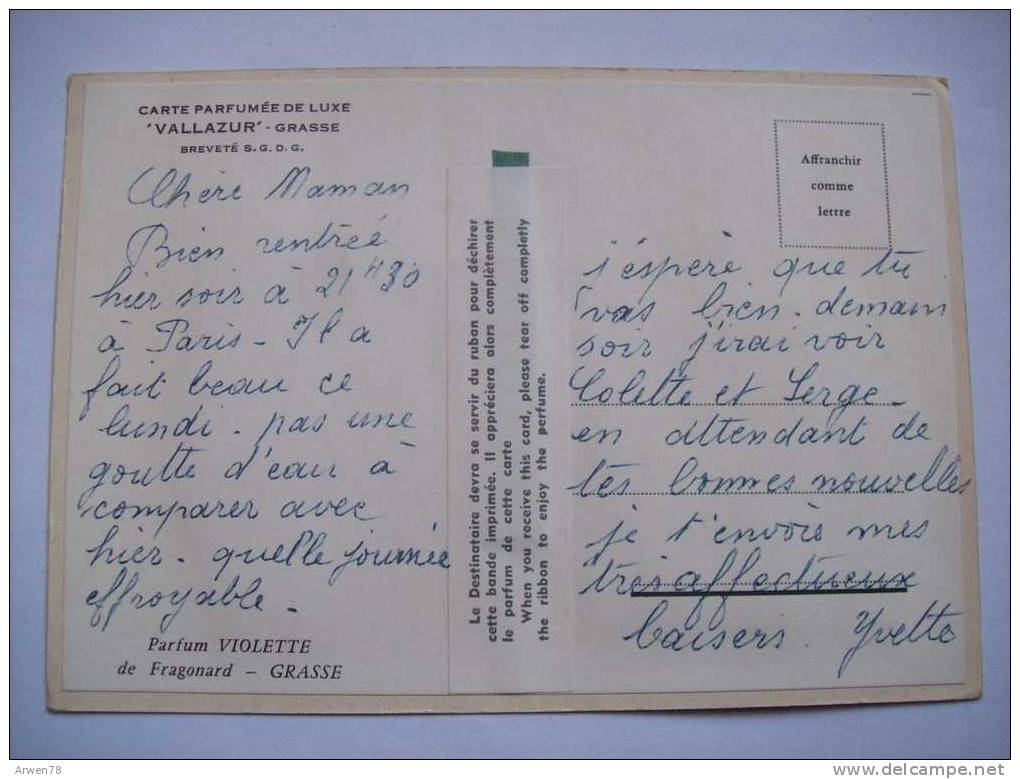 CARTE PARFUMÉE DE LUXE
'VALLAZUR' - GRASSE
BREVETÉ S.G.D.G.
Chère Maman
Bien rentrée
hier soir à 21H30
à Paris - Il a
fait beau ce
lundi - pas une
goutte d'eau à
comparer avec
hier - quelle journée
effroyable -
Parfum VIOLETTE
de Fragonard – GRASSE
Le Destinataire devra se servir du ruban pour déchirer
cette bande imprimée. Il appréciera alors complètement
le parfum de cette carte
When you receive this card, please tear off completly
the ribbon to enjoy the perfume.
Affranchir
comme
lettre
j'espère que tu
vas bien - demain
soir j'irai voir
Colette et Serge -
en attendant de
tes bonnes nouvelles
je t'envoie mes
très affectueux
baisers Yvette
Arwen78
http://www.delcampe.net